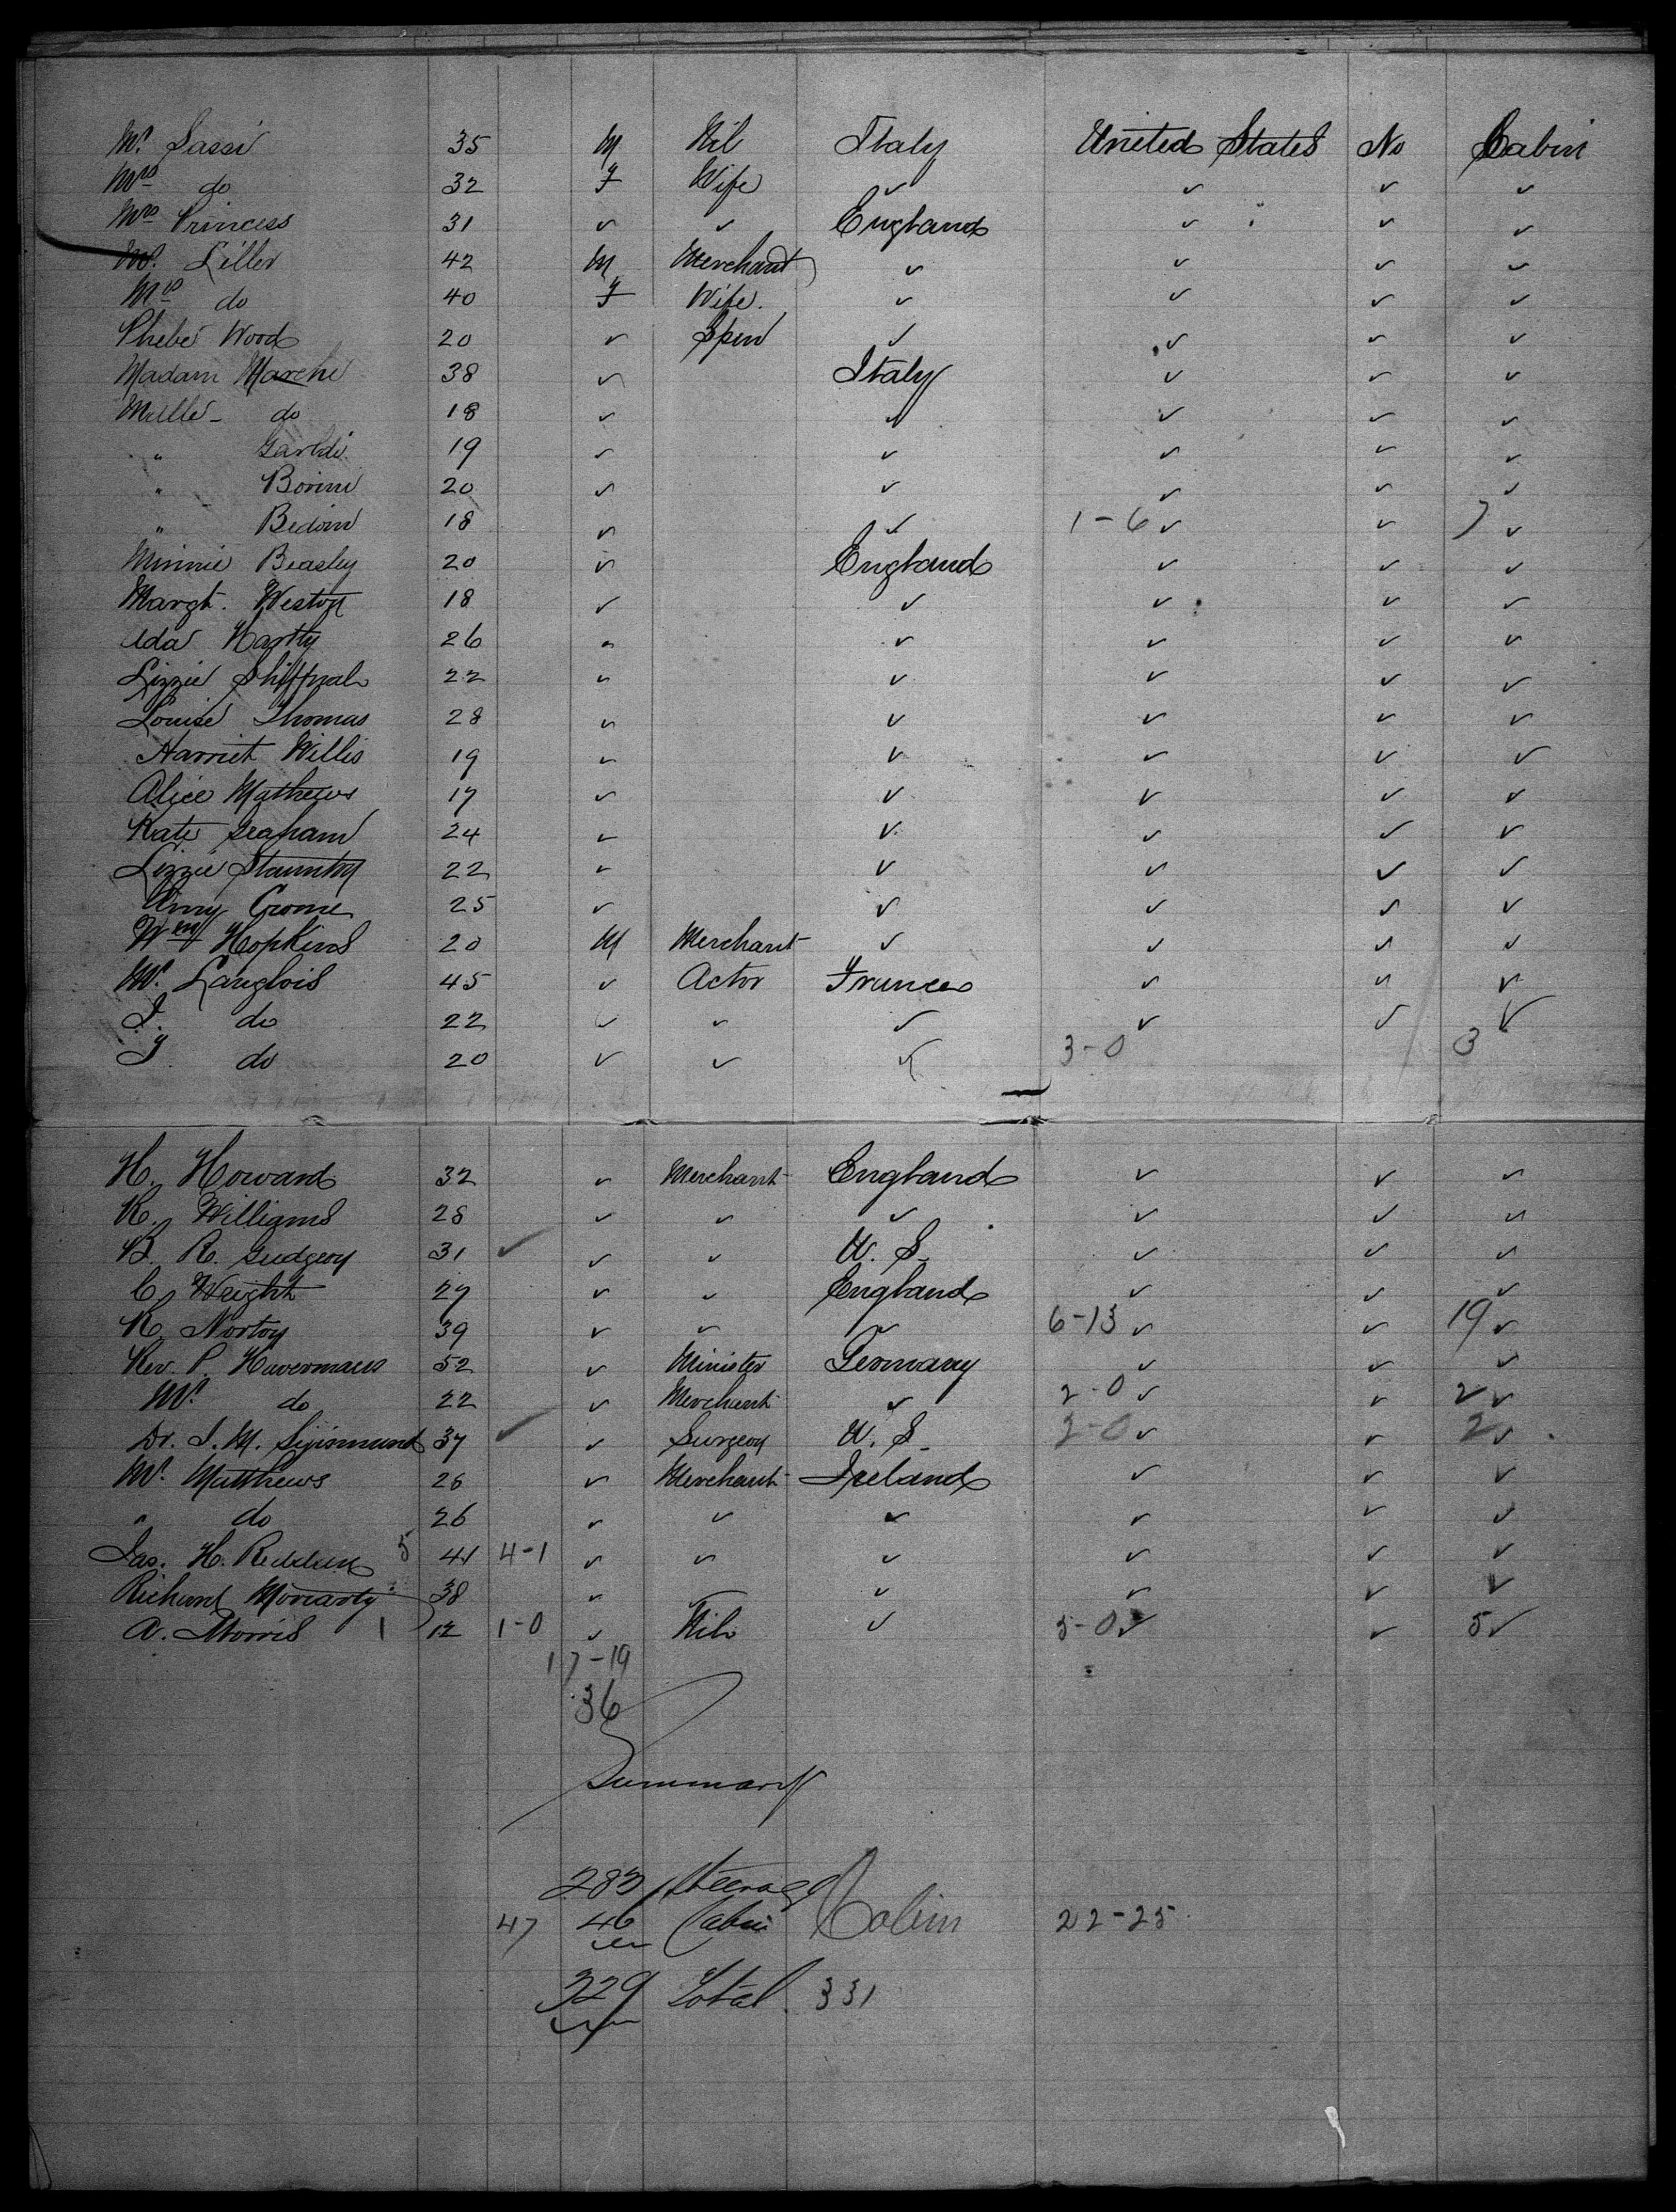 Mr. Sassi 35 M Nil Italy United States No Cabin
Mrs do 32 F Wife ✓ ✓ ✓ ✓
Mrs Princess 31 ✓ ✓ England ✓ ✓ ✓
Mr. Liller 42 M Merchant ✓ ✓ ✓ ✓
Mrs do 40 F Wife. ✓ ✓ ✓ ✓
Phebe Wood 20 ✓ Spin ✓ ✓ ✓ ✓
Madam Marche 38 ✓ Italy ✓ ✓ ✓
Mulle - do 18 ✓ ✓ ✓ ✓ ✓
" 19 ✓ ✓ ✓ ✓ ✓
" Borini 20 ✓ ✓ ✓ ✓ ✓
" Bedoni 18 ✓ ✓ 1-6 ✓ ✓ 7 ✓
Minnie Beasley 20 ✓ England ✓ ✓ ✓
Margt. Weston 18 ✓ ✓ ✓ ✓ ✓
Ada Hartly 26 ✓ ✓ ✓ ✓ ✓
Lizzie Shiffnal 22 ✓ ✓ ✓ ✓ ✓
Louise Thomas 28 ✓ ✓ ✓ ✓ ✓
Harriet Willis 19 ✓ ✓ ✓ ✓ ✓
Alice Mathews 17 ✓ ✓ ✓ ✓ ✓
Kate Seaham 24 ✓ ✓ ✓ ✓ ✓
Lizzie Staunton 22 ✓ ✓ ✓ ✓ ✓
Amy Crome 25 ✓ ✓ ✓ ✓ ✓
Wm Hopkins 20 M Merchant ✓ ✓ ✓ ✓
Mr. Langlois 45 ✓ Actor France ✓ ✓ ✓
J. do 22 ✓ ✓ ✓ ✓ ✓ ✓
J do 20 ✓ ✓ ✓ 3-0 3
H. Howard 32 ✓ Merchant England ✓ ✓ ✓
K. Williams 28 ✓ ✓ ✓ ✓ ✓ ✓
B. R. Gudgeon 31 ✓ ✓ ✓ U. S. ✓ ✓ ✓
C. Wright 27 ✓ ✓ England ✓ ✓ ✓
K. Norton 39 ✓ ✓ ✓ 6-13 ✓ ✓ 19 ✓
Rev. P. Havermans 52 ✓ Minister Germany ✓ ✓ ✓
Mr. do 22 ✓ Merchant ✓ 2-0 ✓ ✓ 2 ✓
Dr. J. M. Sijismund 37 ✓ ✓ Surgeon U. S. 2-0 ✓ ✓ 2 ✓
Mr. Matthews 28 ✓ Merchant Ireland ✓ ✓ ✓
" do 26 ✓ ✓ ✓ ✓ ✓ ✓
Jas. H. 5 41 4-1 ✓ ✓ ✓ ✓ ✓ ✓
Richard Moriarty 38 ✓ ✓ ✓ ✓ ✓ ✓
A. Morris 1 12 1-0 ✓ Nil ✓ 5-0 ✓ ✓ 5 ✓
17-19
36
Summary
283 Steerage
47 46 Cabin Cabin 22-25
329 Total. 331